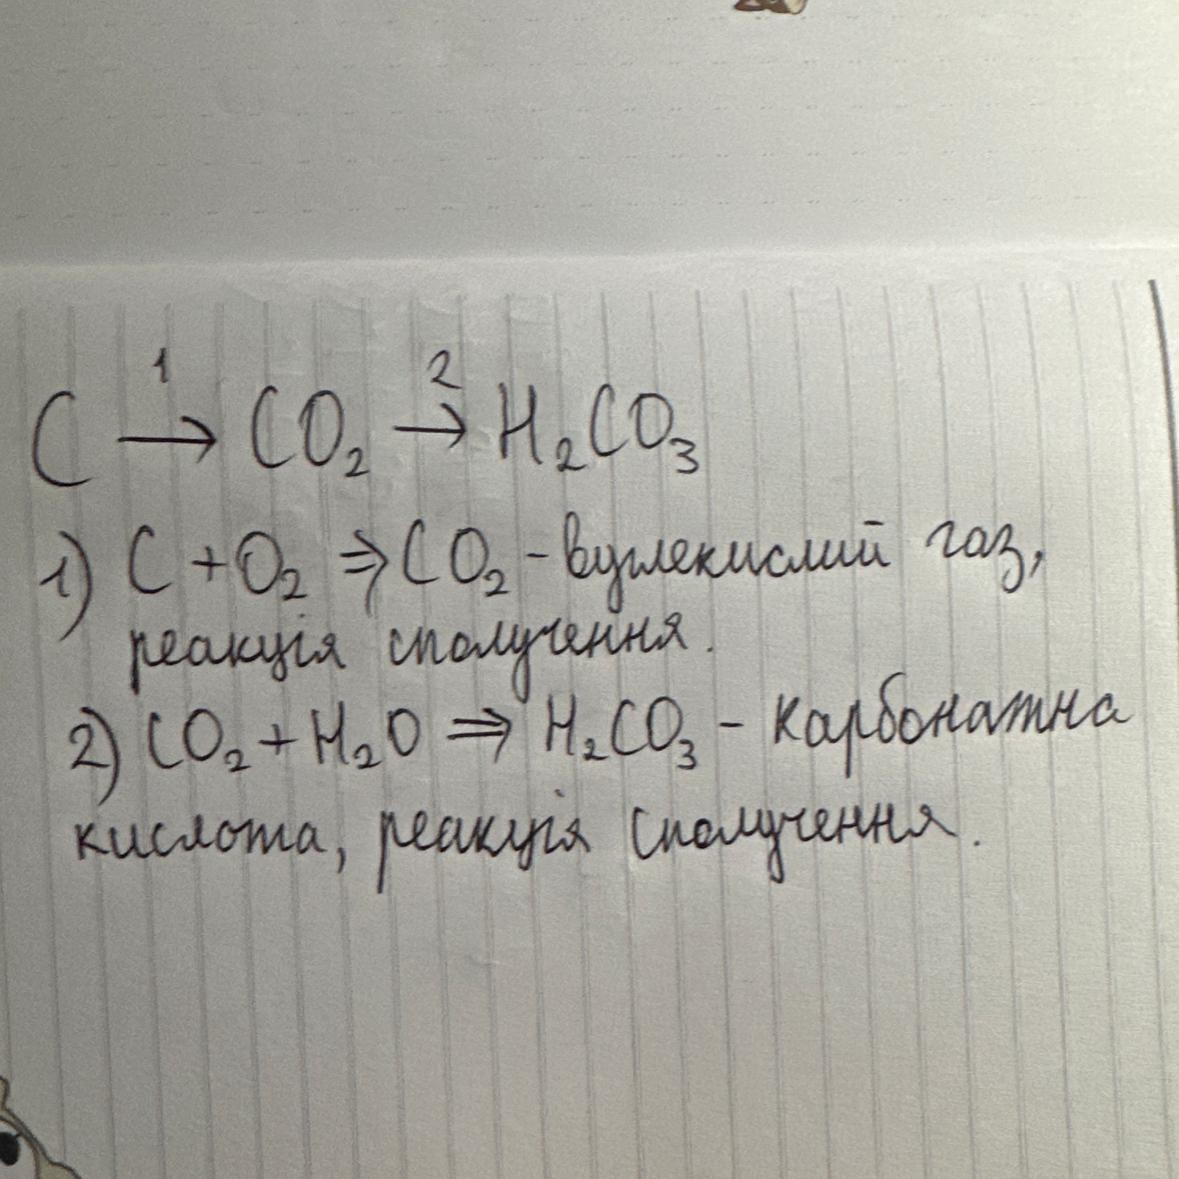 C →¹ CO₂ →² H₂CO₃
1) C + O₂ ⇒ CO₂ - вуглекислий газ,
реакція сполучення.
2) CO₂ + H₂O ⇒ H₂CO₃ - карбонатна
кислота, реакція сполучення.